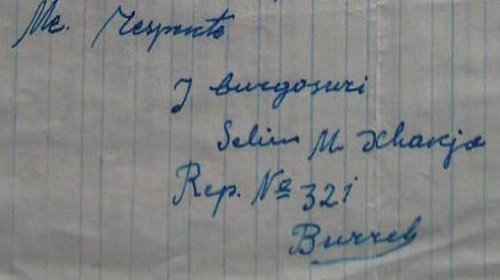 Me. respekte
I burgosuri
Selim M. Xhanja
Rep. No 321
Burrel